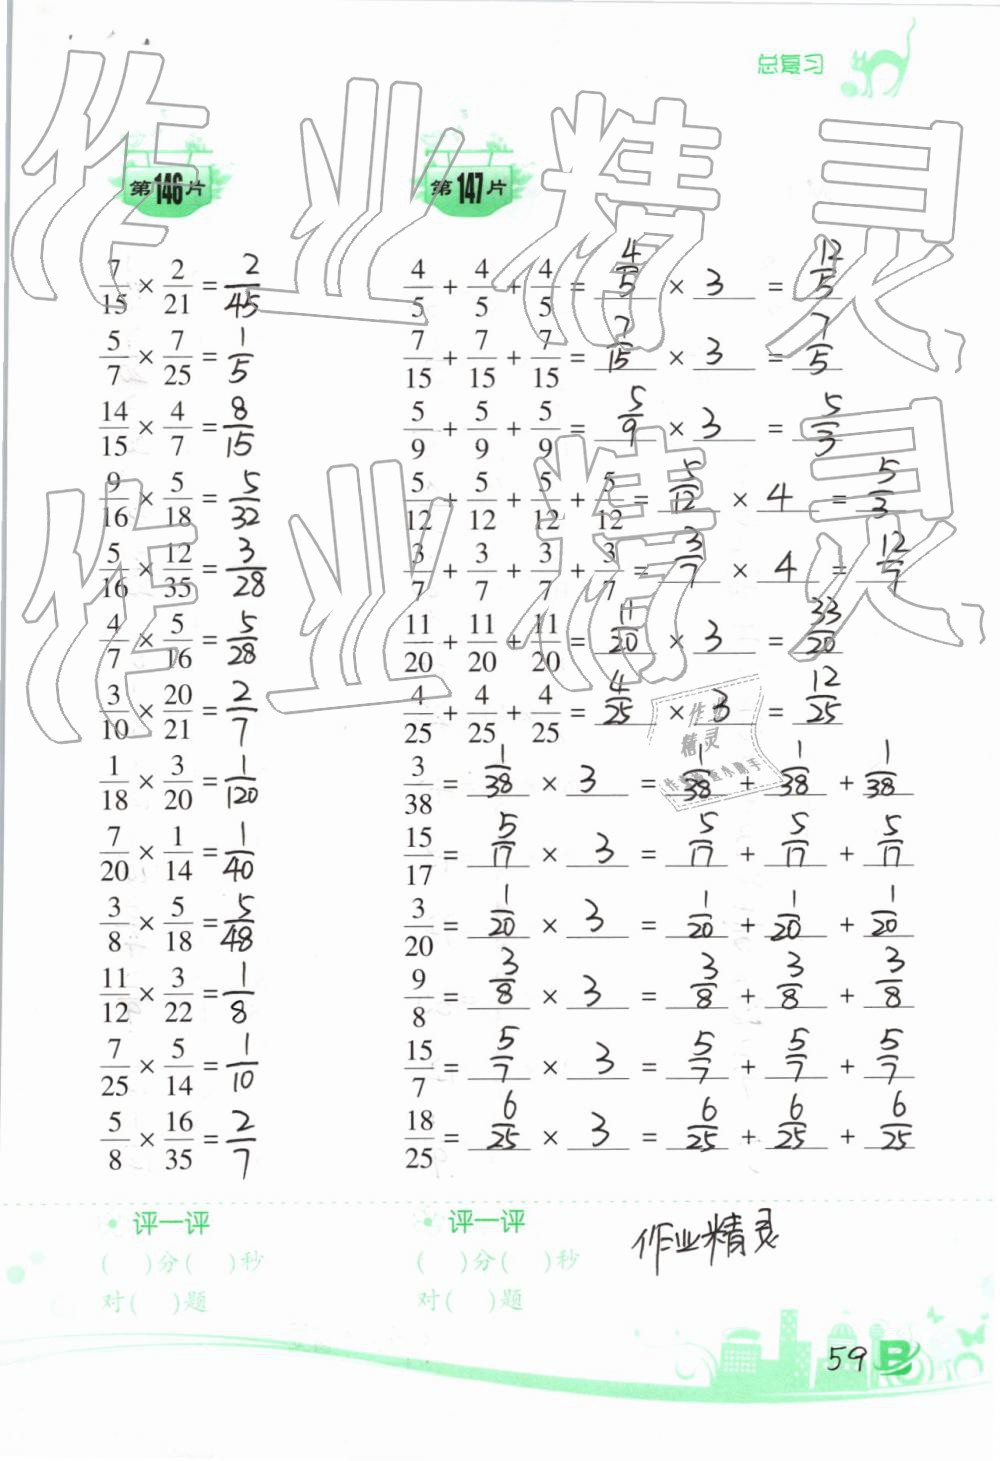 总复习
作业精灵
第146片
7/15 × 2/21 = 2/45
5/7 × 7/25 = 1/5
14/15 × 4/7 = 8/15
9/16 × 5/18 = 5/32
5/16 × 12/35 = 3/28
4/7 × 5/16 = 5/28
3/10 × 20/21 = 2/7
1/18 × 3/20 = 1/120
7/20 × 1/14 = 1/40
3/8 × 5/18 = 5/48
11/12 × 3/22 = 1/8
7/25 × 5/14 = 1/10
5/8 × 16/35 = 2/7
评一评
( )分( )秒
对( )题
第147片
4/5 + 4/5 + 4/5 = 4/5 × 3 = 12/5
7/15 + 7/15 + 7/15 = 7/15 × 3 = 7/5
5/9 + 5/9 + 5/9 = 5/9 × 3 = 5/3
5/12 + 5/12 + 5/12 + 5/12 = 5/12 × 4 = 5/3
3/7 + 3/7 + 3/7 + 3/7 = 3/7 × 4 = 12/7
11/20 + 11/20 + 11/20 = 11/20 × 3 = 33/20
4/25 + 4/25 + 4/25 = 4/25 × 3 = 12/25
3/38 = 1/38 × 3 = 1/38 + 1/38 + 1/38
15/17 = 5/17 × 3 = 5/17 + 5/17 + 5/17
3/20 = 1/20 × 3 = 1/20 + 1/20 + 1/20
9/8 = 3/8 × 3 = 3/8 + 3/8 + 3/8
15/7 = 5/7 × 3 = 5/7 + 5/7 + 5/7
18/25 = 6/25 × 3 = 6/25 + 6/25 + 6/25
评一评
( )分( )秒
对( )题
作业精灵
作业精灵
作业
精灵
59 B